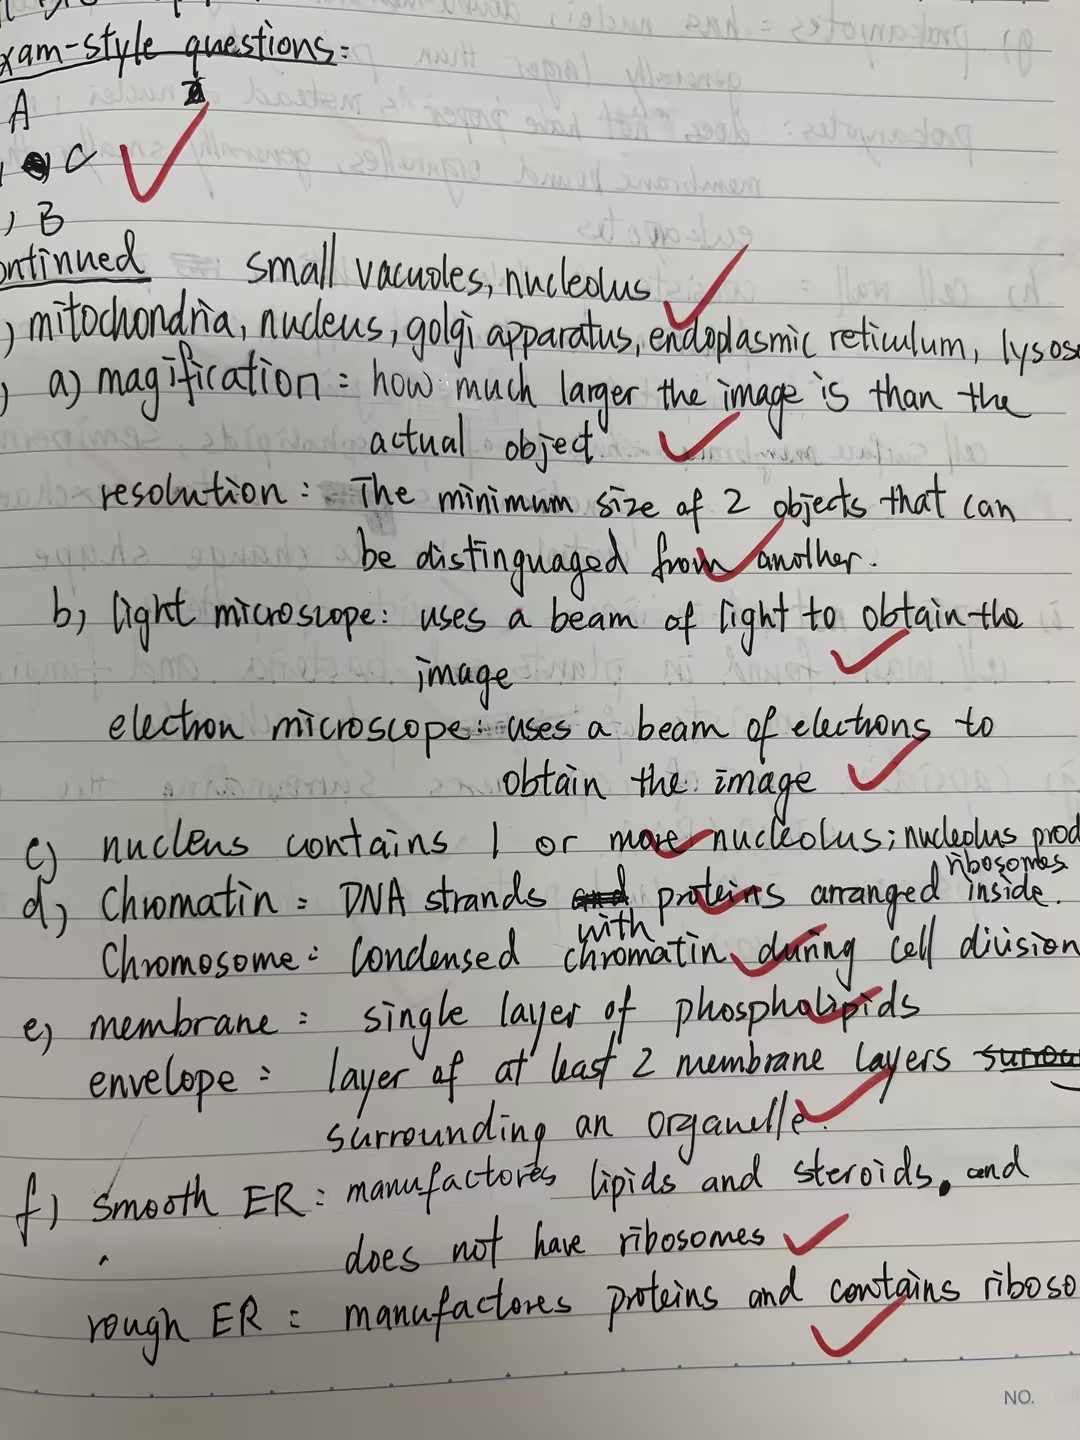 xam-style questions:
A
C
, B
ontinued small vacuoles, nucleolus
) mitochondria, nucleus, golgi apparatus, endoplasmic reticulum, lysos
) a) magification = how much larger the image is than the
actual object
resolution: The minimum size of 2 objects that can
be distinguaged from another.
b) light microscope: uses a beam of light to obtain the
image
electron microscope: uses a beam of electrons to
obtain the image
c) nucleus contains 1 or more nucleolus; nucleolus prod
ribosomes
d) Chromatin = DNA strands with proteins arranged inside.
Chromosome: Condensed chromatin during cell division
e) membrane : single layer of phospholipids
envelope : layer of at least 2 membrane layers
surrounding an organelle.
f) smooth ER : manufactores lipids and steroids, and
does not have ribosomes
rough ER : manufactores proteins and contains riboso
NO.